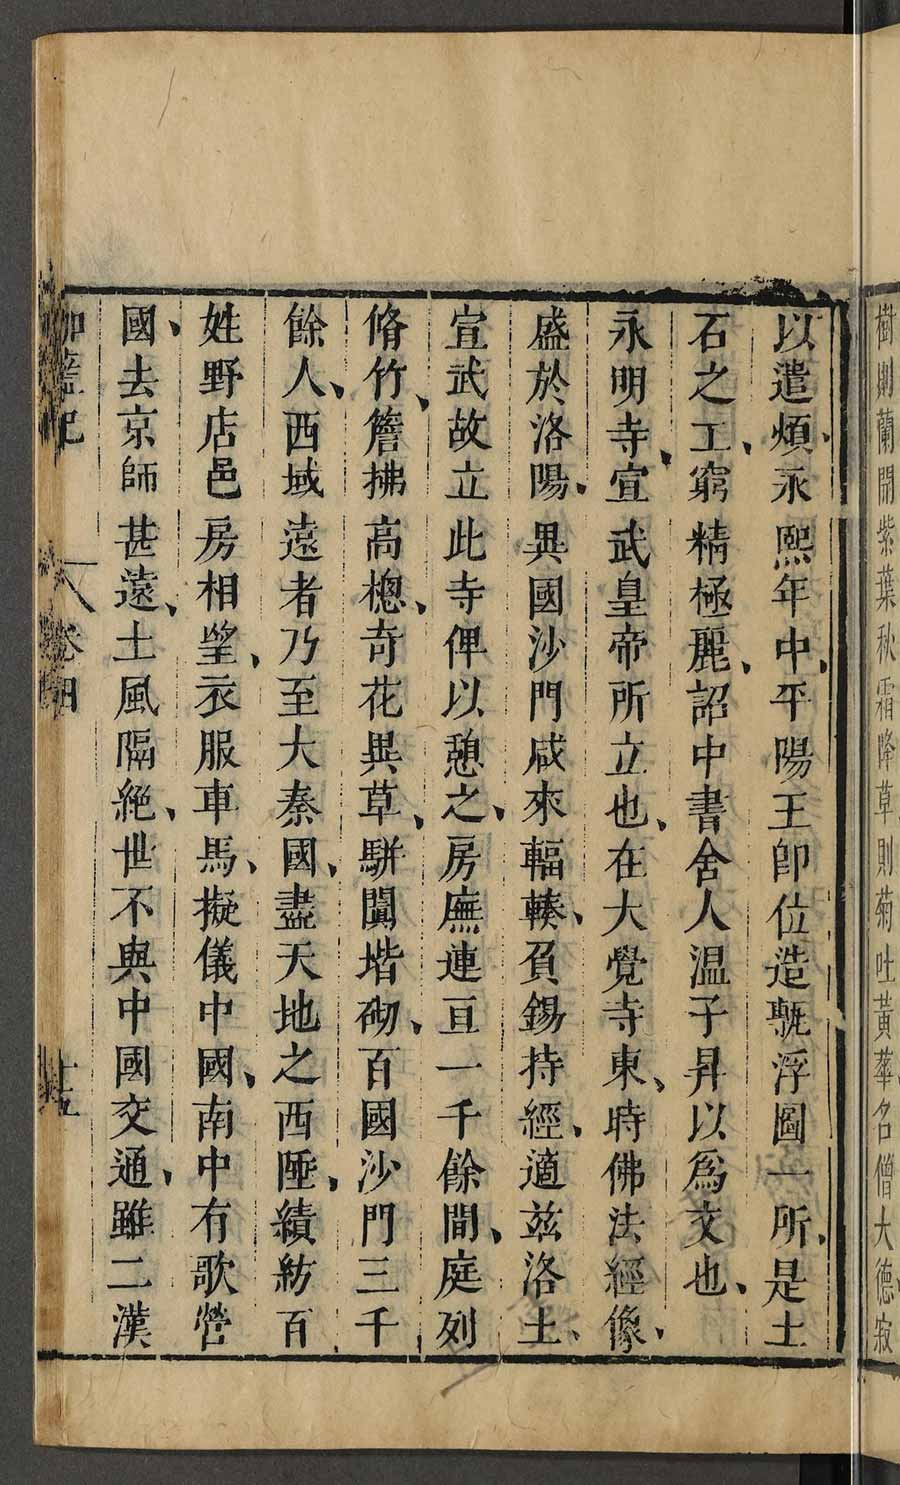 樹則蘭開紫葉秋霜降草則菊吐黃華名僧大德寂
以遣煩永熙年中平陽王即位造甎浮圖一所是土
石之工窮精極麗詔中書舍人温子昇以爲文也
永明寺宣武皇帝所立也在大覺寺東時佛法經像
盛於洛陽異國沙門咸來輻輳負錫持經適茲洛土
宣武故立此寺俾以憩之房廡連亘一千餘間庭列
脩竹簷拂高樬奇花異草駢闐堦砌百國沙門三千
餘人西域遠者乃至大秦國盡天地之西陲績紡百
姓野店邑房相望衣服車馬擬儀中國南中有歌營
國去京師甚遠土風隔絶世不與中國交通雖二漢
伽藍記 卷四 十五